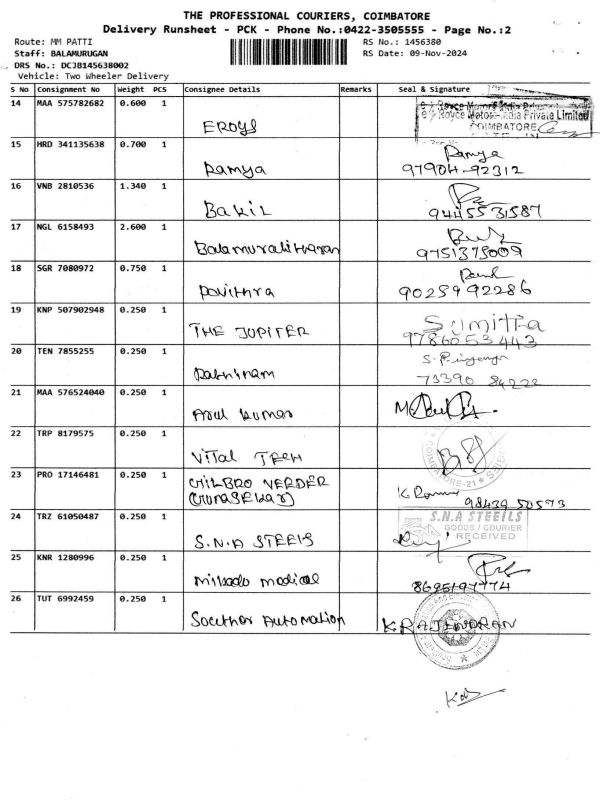 THE PROFESSIONAL COURIERS, COIMBATORE
Delivery Runsheet - PCK - Phone No.:0422-3505555 - Page No.:2
Route: MM PATTI
RS No.: 1456380
Staff: BALAMURUGAN
RS Date: 09-Nov-2024
DRS No.: DCJB145638002
Vehicle: Two Wheeler Delivery
S No Consignment No Weight PCS Consignee Details Remarks Seal & Signature
14 MAA 575782682 0.600 1
Royce Motors India Private Limited
COIMBATORE
EROYS
15 HRD 341135638 0.700 1
Ramya
Ramya
97904-92312
16 VNB 2810536 1.340 1
Bakil
9445531587
17 NGL 6158493 2.600 1
Balamuralitharan
9751375009
18 SGR 7080972 0.750 1
Pavithra
9025992286
19 KNP 507902948 0.250 1
THE JUPITER
Sumitra
9786053443
20 TEN 7855255 0.250 1
73390 84222
21 MAA 576524040 0.250 1
Arul kumar
22 TRP 8179575 0.250 1
Vital TECH
COIMBATORE-21
23 PRO 17146481 0.250 1
GILBRO VERDER
(GUNASEKAR)
98439 50593
24 TRZ 61050487 0.250 1
S.N.A STEELS
S.N.A STEELS
GOODS / COURIER
RECEIVED
25 KNR 1280996 0.250 1
Mikado medical
8695197774
26 TUT 6992459 0.250 1
Souther Automation
K RAJENDRAN